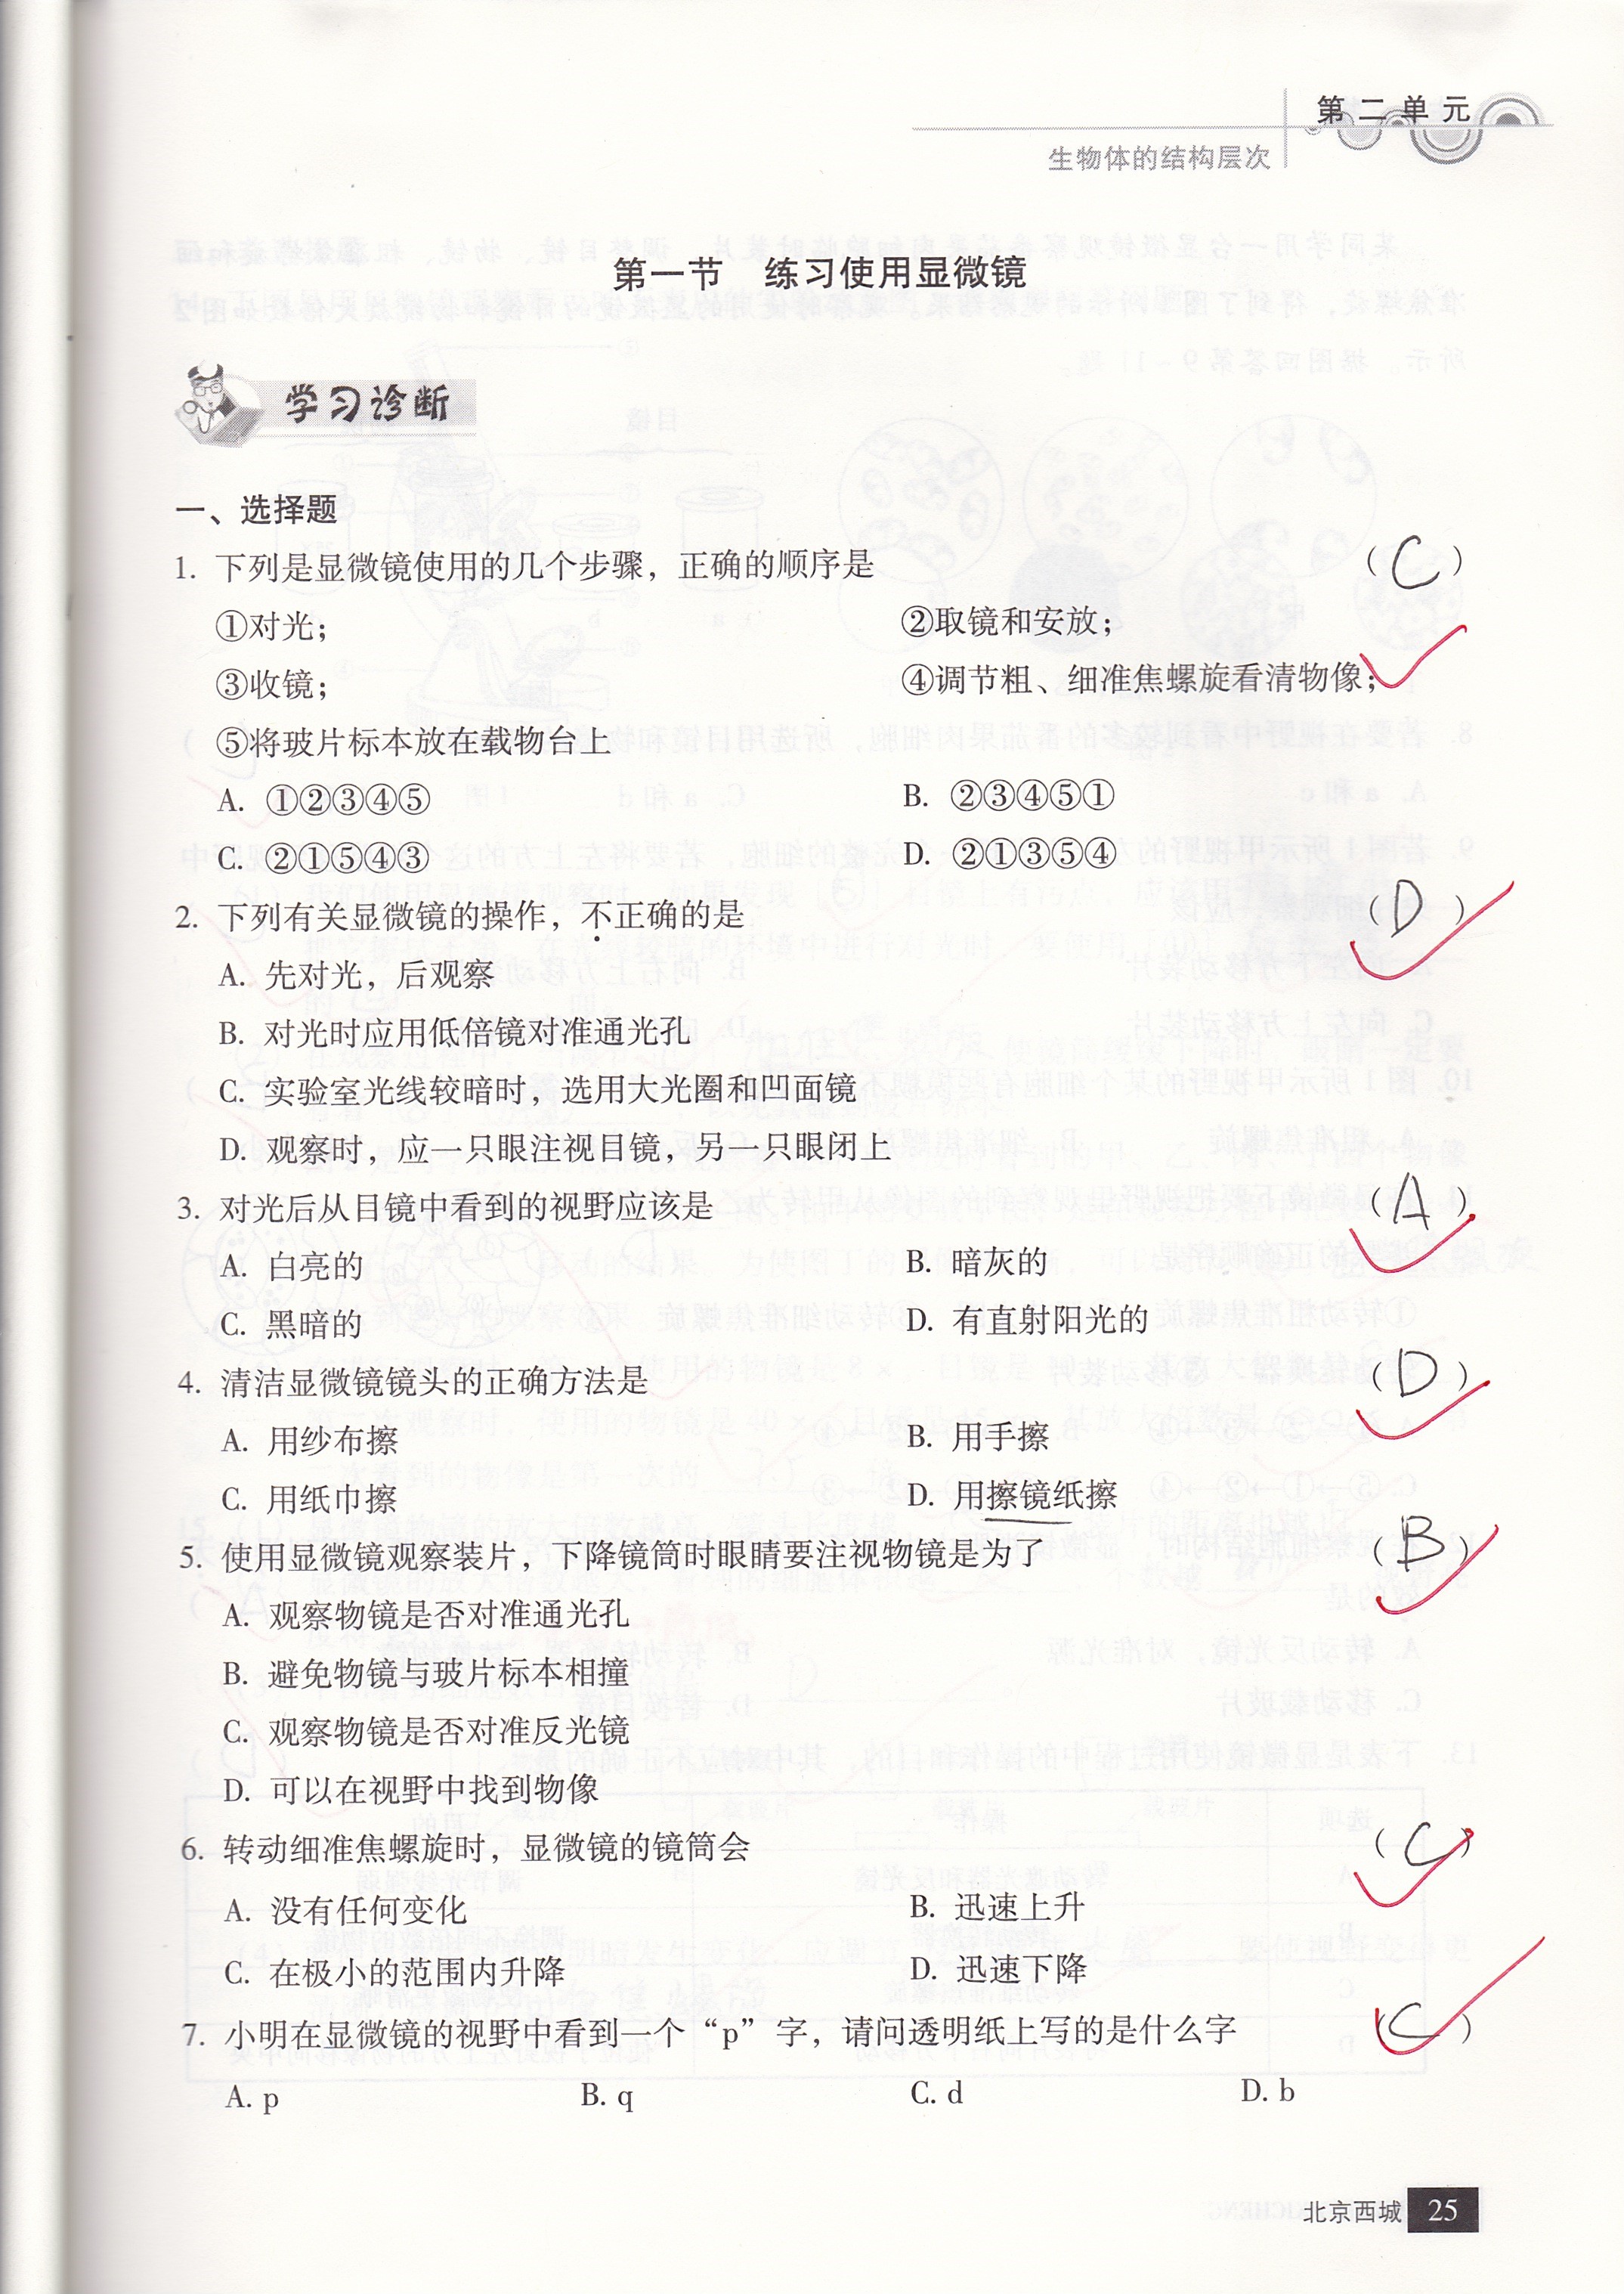 第二单元
生物体的结构层次
第一节 练习使用显微镜
学习诊断
一、选择题
1. 下列是显微镜使用的几个步骤，正确的顺序是 （C）
①对光； ②取镜和安放；
③收镜； ④调节粗、细准焦螺旋看清物像；
⑤将玻片标本放在载物台上
A. ①②③④⑤ B. ②③④⑤①
C. ②①⑤④③ D. ②①③⑤④
2. 下列有关显微镜的操作，不正确的是 （D）
A. 先对光，后观察
B. 对光时应用低倍镜对准通光孔
C. 实验室光线较暗时，选用大光圈和凹面镜
D. 观察时，应一只眼注视目镜，另一只眼闭上
3. 对光后从目镜中看到的视野应该是 （A）
A. 白亮的 B. 暗灰的
C. 黑暗的 D. 有直射阳光的
4. 清洁显微镜镜头的正确方法是 （D）
A. 用纱布擦 B. 用手擦
C. 用纸巾擦 D. 用擦镜纸擦
5. 使用显微镜观察装片，下降镜筒时眼睛要注视物镜是为了 （B）
A. 观察物镜是否对准通光孔
B. 避免物镜与玻片标本相撞
C. 观察物镜是否对准反光镜
D. 可以在视野中找到物像
6. 转动细准焦螺旋时，显微镜的镜筒会 （C）
A. 没有任何变化 B. 迅速上升
C. 在极小的范围内升降 D. 迅速下降
7. 小明在显微镜的视野中看到一个“p”字，请问透明纸上写的是什么字 （C）
A. p B. q C. d D. b
北京西城 25